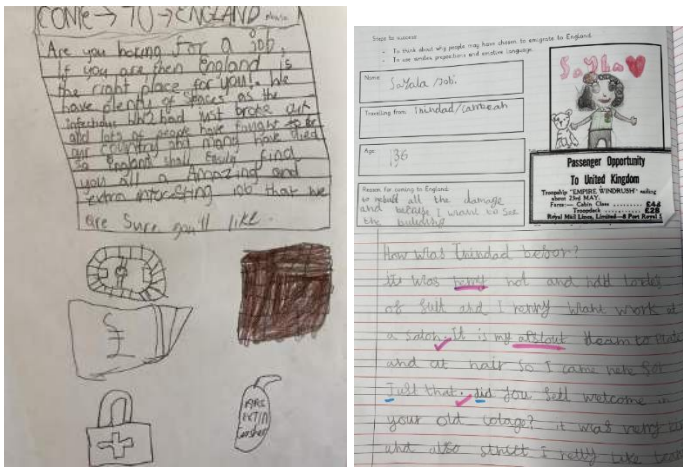 COME → TO → ENGLAND please
Are you looking for a job,
if you are then England is
the right place for you!. We
have plenty of spaces as the
infectious WW2 had just broke out
and lots of people have fought to be
our country and many have died
so England shall Easily find
you all a Amazing and
extra interesting job that we
are Sure you'll like.
FIRE
EXTIN
Steps to success:
- To think about why people may have chosen to emigrate to England.
- To use similes, prepositions and emotive language.
Name
Sayla /Jobi
Travelling from Trinidad/
Age
136
Reason for coming to England:
to rebuild all the damage
and because I want to see
the
Sayla
Passenger Opportunity
To United Kingdom
Troopship "EMPIRE WINDRUSH" sailing
about 23rd MAY.
Fares:— Cabin Class ........ £48
Troopdeck ........ £28
Royal Mail Lines, Limited—8 Port Royal S
How was Trinidad befor?
it was rerry hot and had
of and I rerry want work at
a salon. It is my
and at hair so I came here for
Just that. did you fell welcome in
your old cotage? it was very
and also strict I relly like